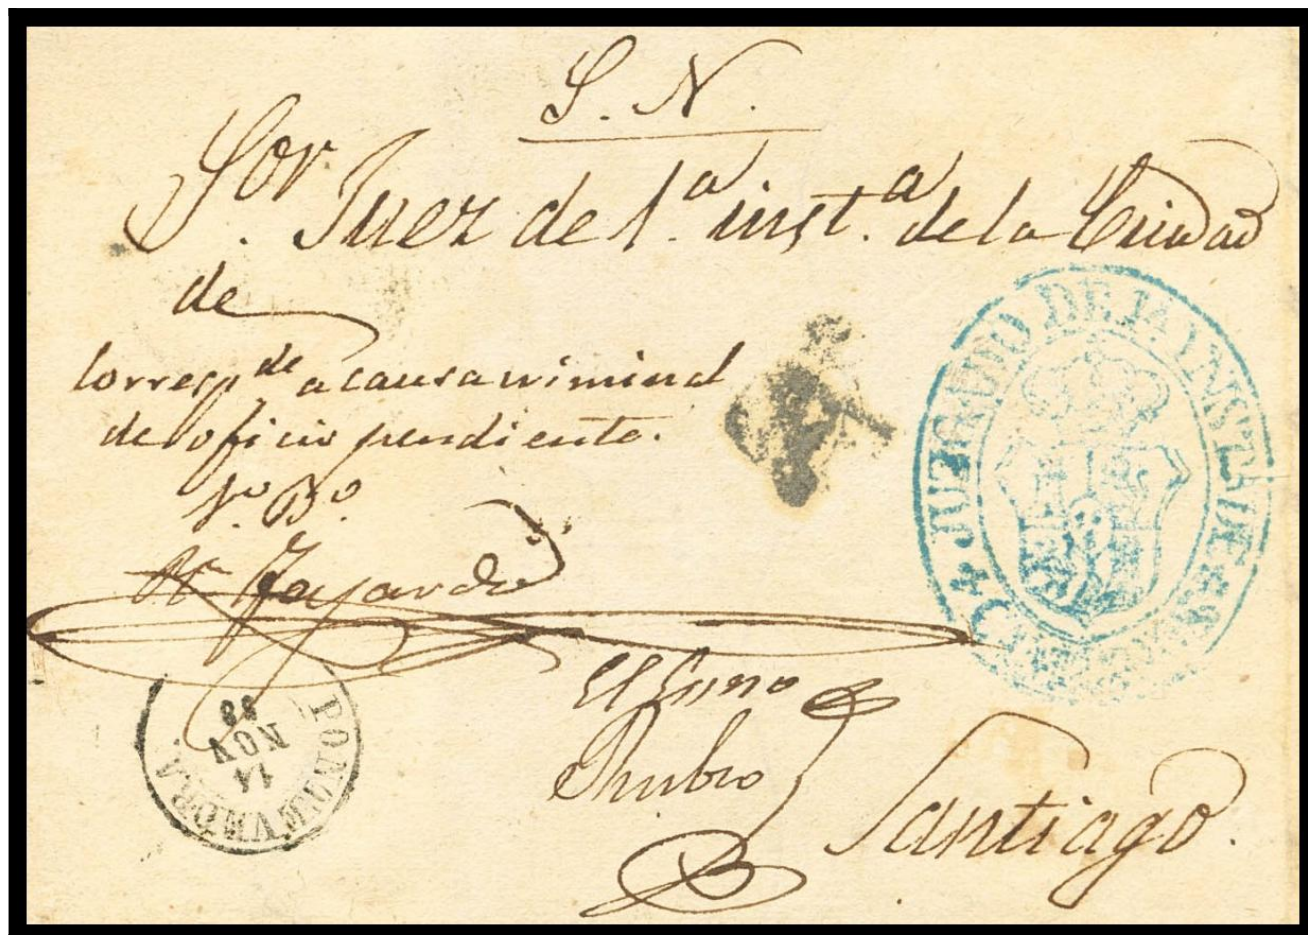 S. N.
Sor. Juez de 1.ª inst.ª de la Ciudad
de
Corresp.de a causa criminal
de oficio pendiente.
V.º B.º
Fajardo
El Essno
Rubio
Santiago.
JUZGADO DE 1ª INSTª DE
PONTEVEDRA
14
NOV